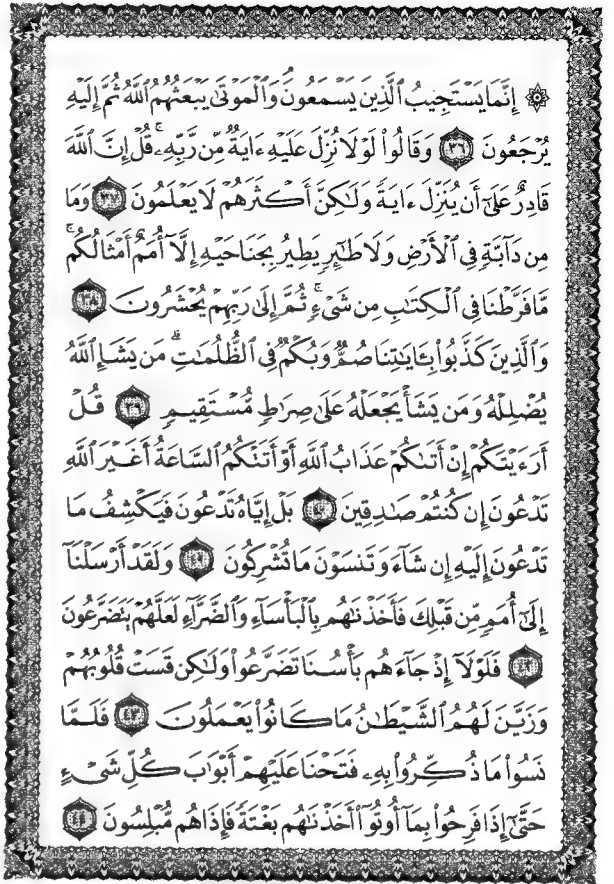 ۞ إِنَّمَا يَسْتَجِيبُ ٱلَّذِينَ يَسْمَعُونَ ۘ وَٱلْمَوْتَىٰ يَبْعَثُهُمُ ٱللَّهُ ثُمَّ إِلَيْهِ
يُرْجَعُونَ ٣٦ وَقَالُوا۟ لَوْلَا نُزِّلَ عَلَيْهِ ءَايَةٌ مِّن رَّبِّهِۦ ۚ قُلْ إِنَّ ٱللَّهَ
قَادِرٌ عَلَىٰٓ أَن يُنَزِّلَ ءَايَةً وَلَـٰكِنَّ أَكْثَرَهُمْ لَا يَعْلَمُونَ ٣٧ وَمَا
مِن دَآبَّةٍ فِى ٱلْأَرْضِ وَلَا طَـٰٓئِرٍ يَطِيرُ بِجَنَاحَيْهِ إِلَّآ أُمَمٌ أَمْثَالُكُم ۚ
مَّا فَرَّطْنَا فِى ٱلْكِتَـٰبِ مِن شَىْءٍ ۚ ثُمَّ إِلَىٰ رَبِّهِمْ يُحْشَرُونَ ٣٨
وَٱلَّذِينَ كَذَّبُوا۟ بِـَٔايَـٰتِنَا صُمٌّ وَبُكْمٌ فِى ٱلظُّلُمَـٰتِ ۗ مَن يَشَإِ ٱللَّهُ
يُضْلِلْهُ وَمَن يَشَأْ يَجْعَلْهُ عَلَىٰ صِرَٰطٍ مُّسْتَقِيمٍ ٣٩ قُلْ
أَرَءَيْتَكُمْ إِنْ أَتَىٰكُمْ عَذَابُ ٱللَّهِ أَوْ أَتَتْكُمُ ٱلسَّاعَةُ أَغَيْرَ ٱللَّهِ
تَدْعُونَ إِن كُنتُمْ صَـٰدِقِينَ ٤٠ بَلْ إِيَّاهُ تَدْعُونَ فَيَكْشِفُ مَا
تَدْعُونَ إِلَيْهِ إِن شَآءَ وَتَنسَوْنَ مَا تُشْرِكُونَ ٤١ وَلَقَدْ أَرْسَلْنَآ
إِلَىٰٓ أُمَمٍ مِّن قَبْلِكَ فَأَخَذْنَـٰهُم بِٱلْبَأْسَآءِ وَٱلضَّرَّآءِ لَعَلَّهُمْ يَتَضَرَّعُونَ
٤٢ فَلَوْلَآ إِذْ جَآءَهُم بَأْسُنَا تَضَرَّعُوا۟ وَلَـٰكِن قَسَتْ قُلُوبُهُمْ
وَزَيَّنَ لَهُمُ ٱلشَّيْطَـٰنُ مَا كَانُوا۟ يَعْمَلُونَ ٤٣ فَلَمَّا
نَسُوا۟ مَا ذُكِّرُوا۟ بِهِۦ فَتَحْنَا عَلَيْهِمْ أَبْوَٰبَ كُلِّ شَىْءٍ
حَتَّىٰٓ إِذَا فَرِحُوا۟ بِمَآ أُوتُوٓا۟ أَخَذْنَـٰهُم بَغْتَةً فَإِذَا هُم مُّبْلِسُونَ ٤٤